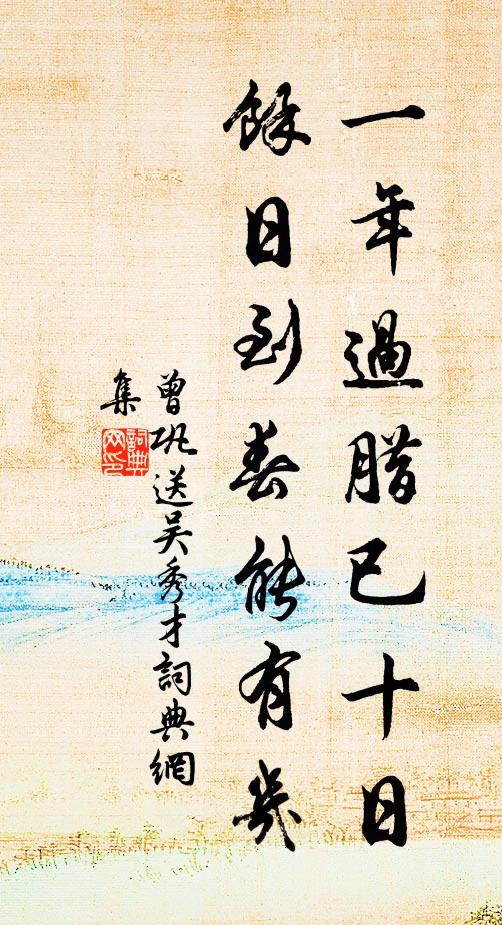 一年過腊已十日
餘日到春能有幾
曾巩送吴秀才詞典網
集
詞典網印